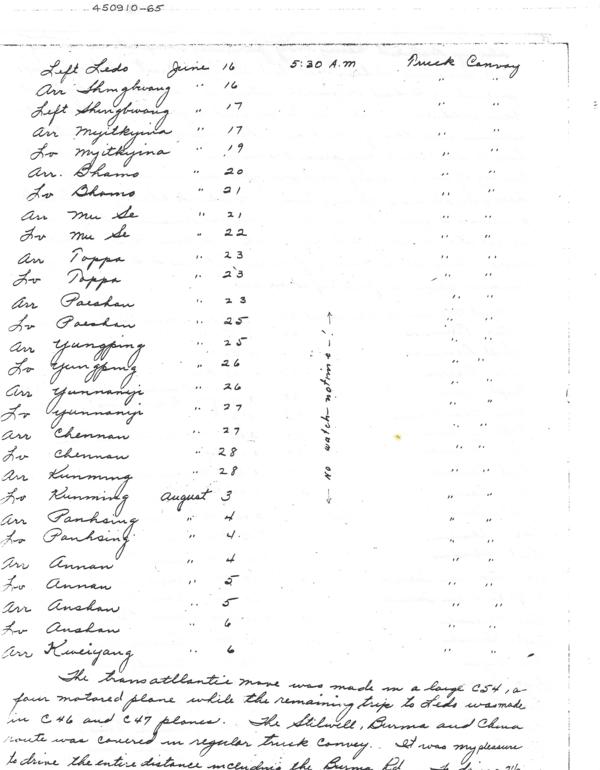 450910-65
Left Ledo June 16 5:30 A.M Truck Convoy
Arr Shingbwang " 16 " "
Left Shingbwang " 17 " "
Arr Myitkyina " 17 " "
Lv Myitkyina " 19 " "
Arr. Bhamo " 20 " "
Lv Bhamo " 21 " "
Arr Mu Se " 21 " "
Lv Mu Se " 22 " "
Arr Toppa " 23 " "
Lv Toppa " 23 " "
Arr Paoshan " 23 " "
Lv Paoshan " 25 " "
Arr Yungping " 25 " "
Lv Yungping " 26 " "
Arr Yunnanyi " 26 " "
Lv Yunnanyi " 27 " "
Arr Chennan " 27 " "
Lv Chennan " 28 " "
Arr Kunming " 28 " "
← No watch - no time - ! →
Lv Kunming August 3 " "
Arr Panhsing " 4 " "
Lv Panhsing " 4 " "
Arr Annan " 4 " "
Lv Annan " 5 " "
Arr Anshan " 5 " "
Lv Anshan " 6 " "
Arr Kweiyang " 6 " "
The transatllantic move was made in a large C54, a
four motored plane while the remaining trip to Ledo was made
in C46 and C47 planes. The Stilwell, Burma and China
route was covered in regular truck convoy. It was my pleasure
to drive the entire distance including the Burma Rd.